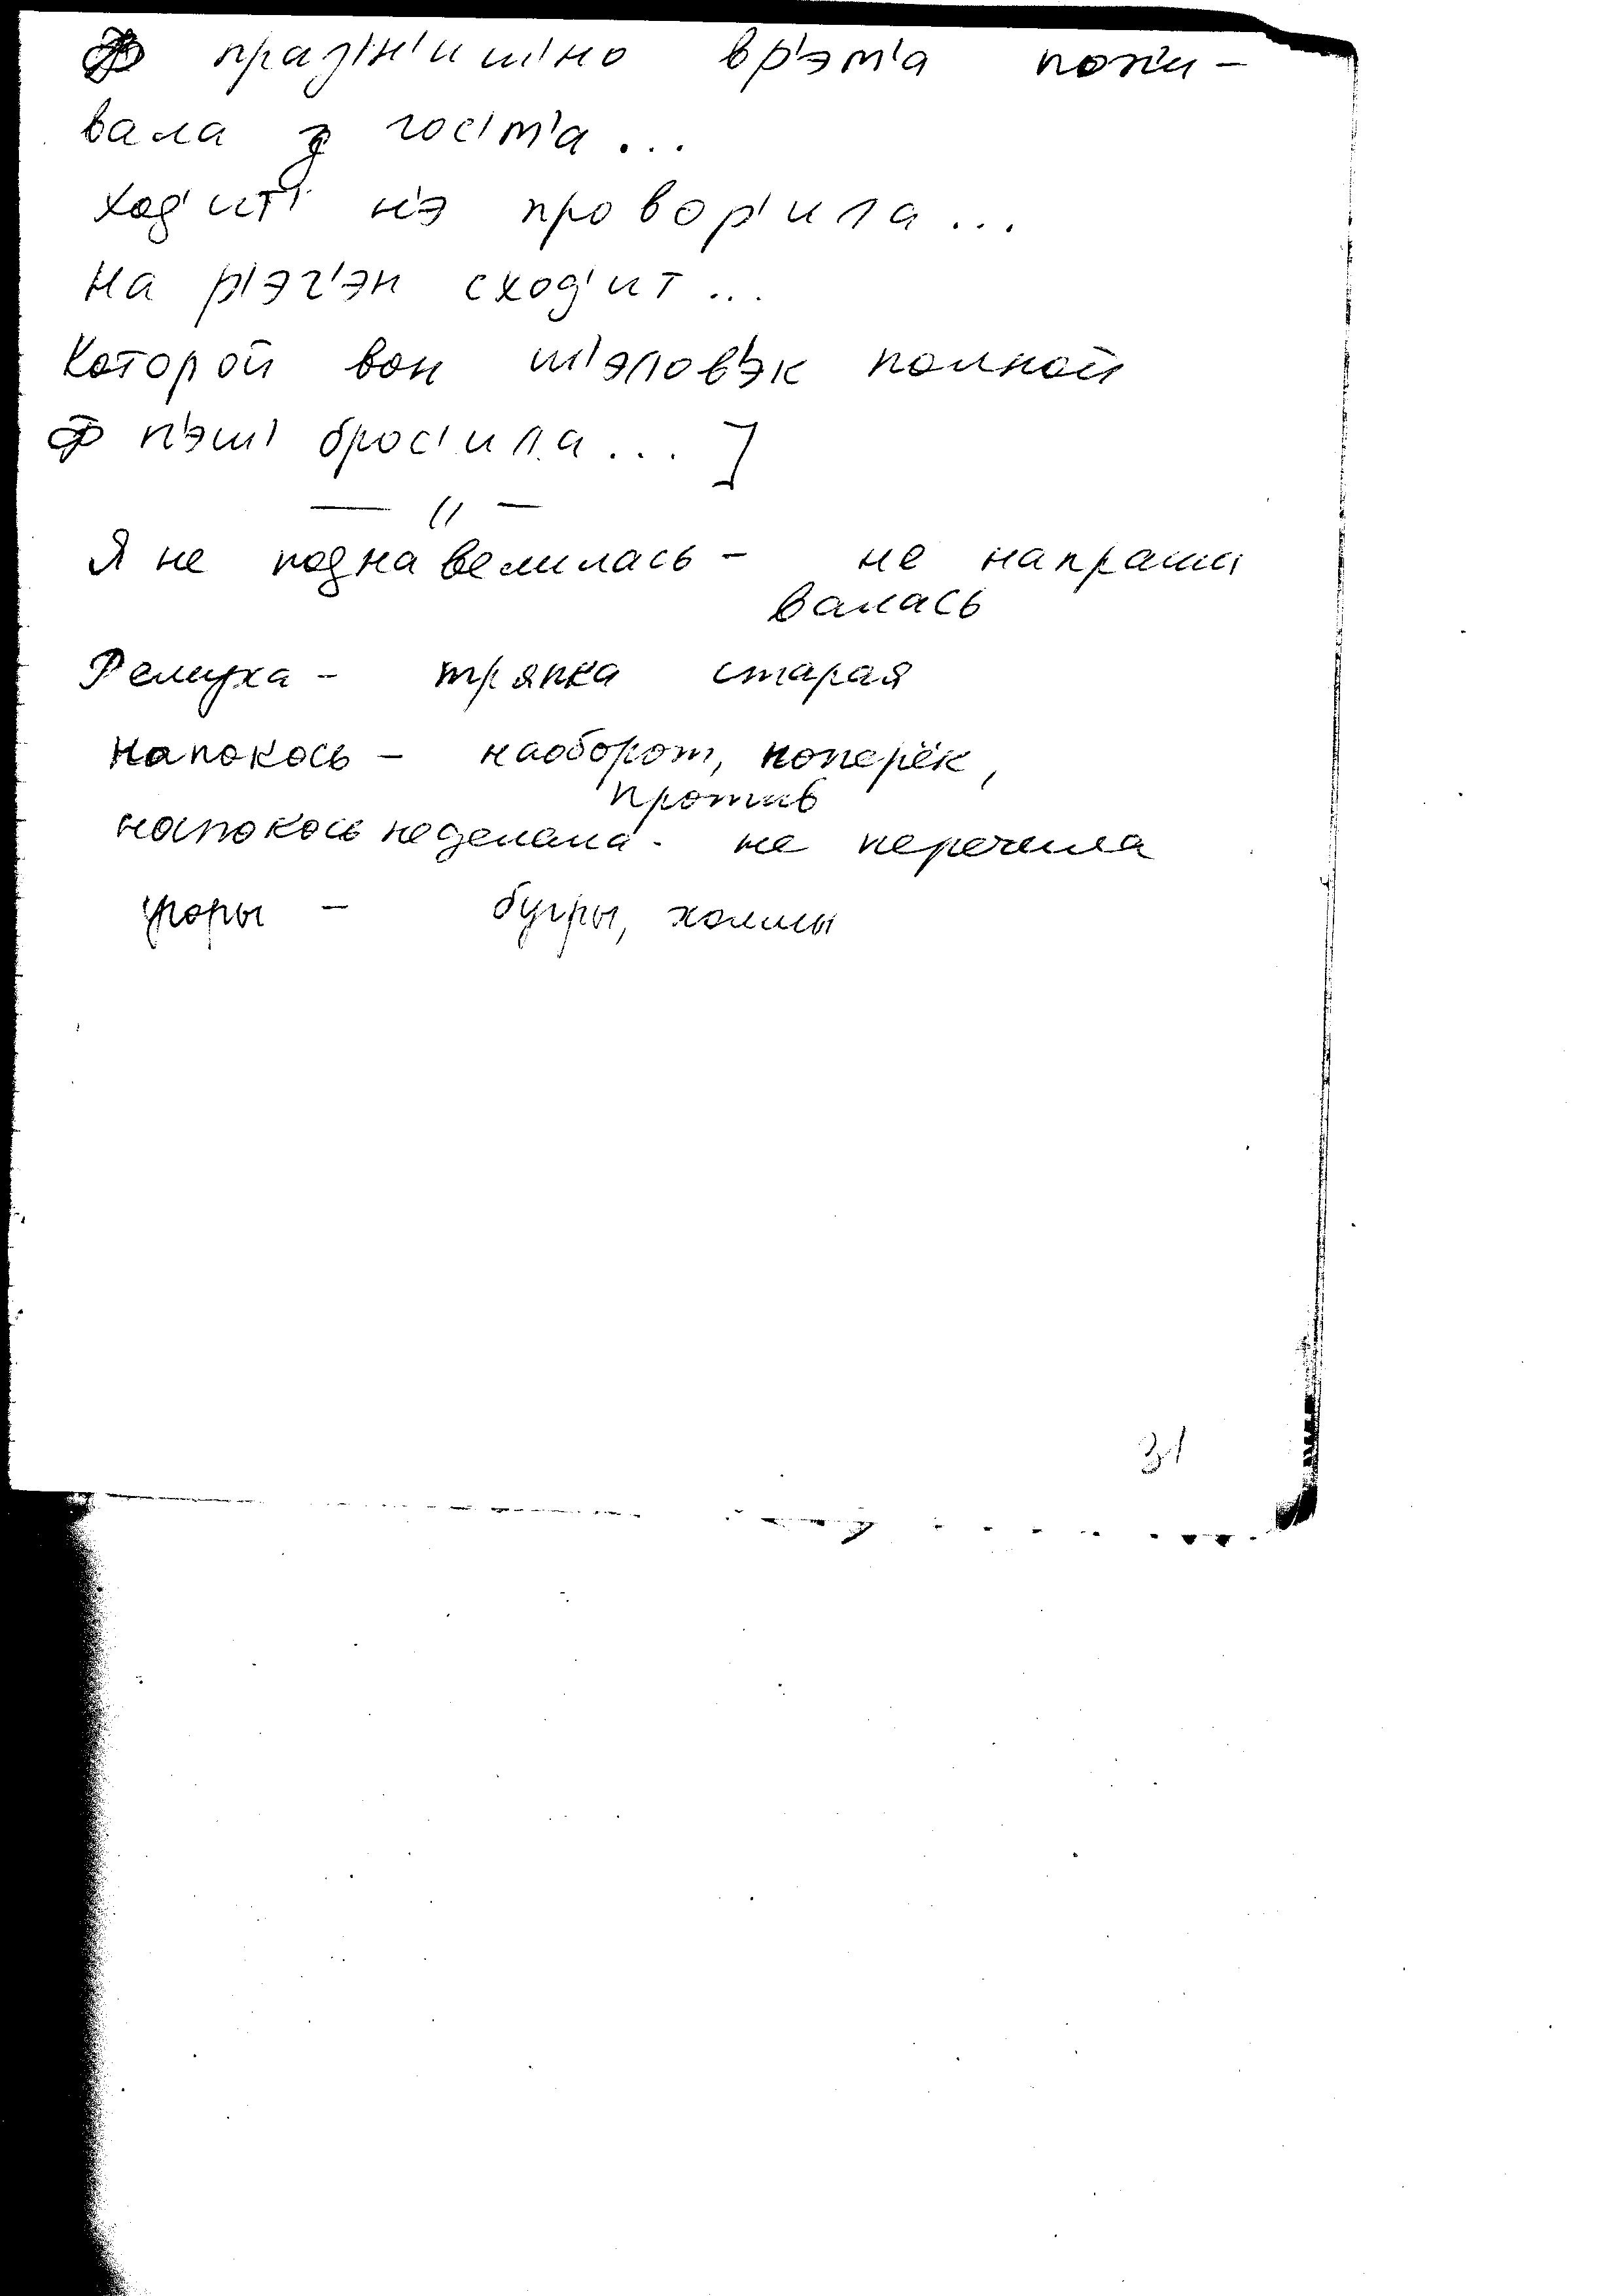 ф праз'н'иш'но вр'эм'а пожи-
вала з гос'т'а...
ход'ит' н'э провор'ила...
на р'эг'эн сход'ит...
Которой вон ш'эловэ'к полной
ф п'эш' брос'ила... ]
— " —
Я не поднавелилась - не напраши
валась
Ремуха - тряпка старая
напокось - наоборот, поперёк,
против
напокось не делала - не перечила
угоры - бугры, холмы
31